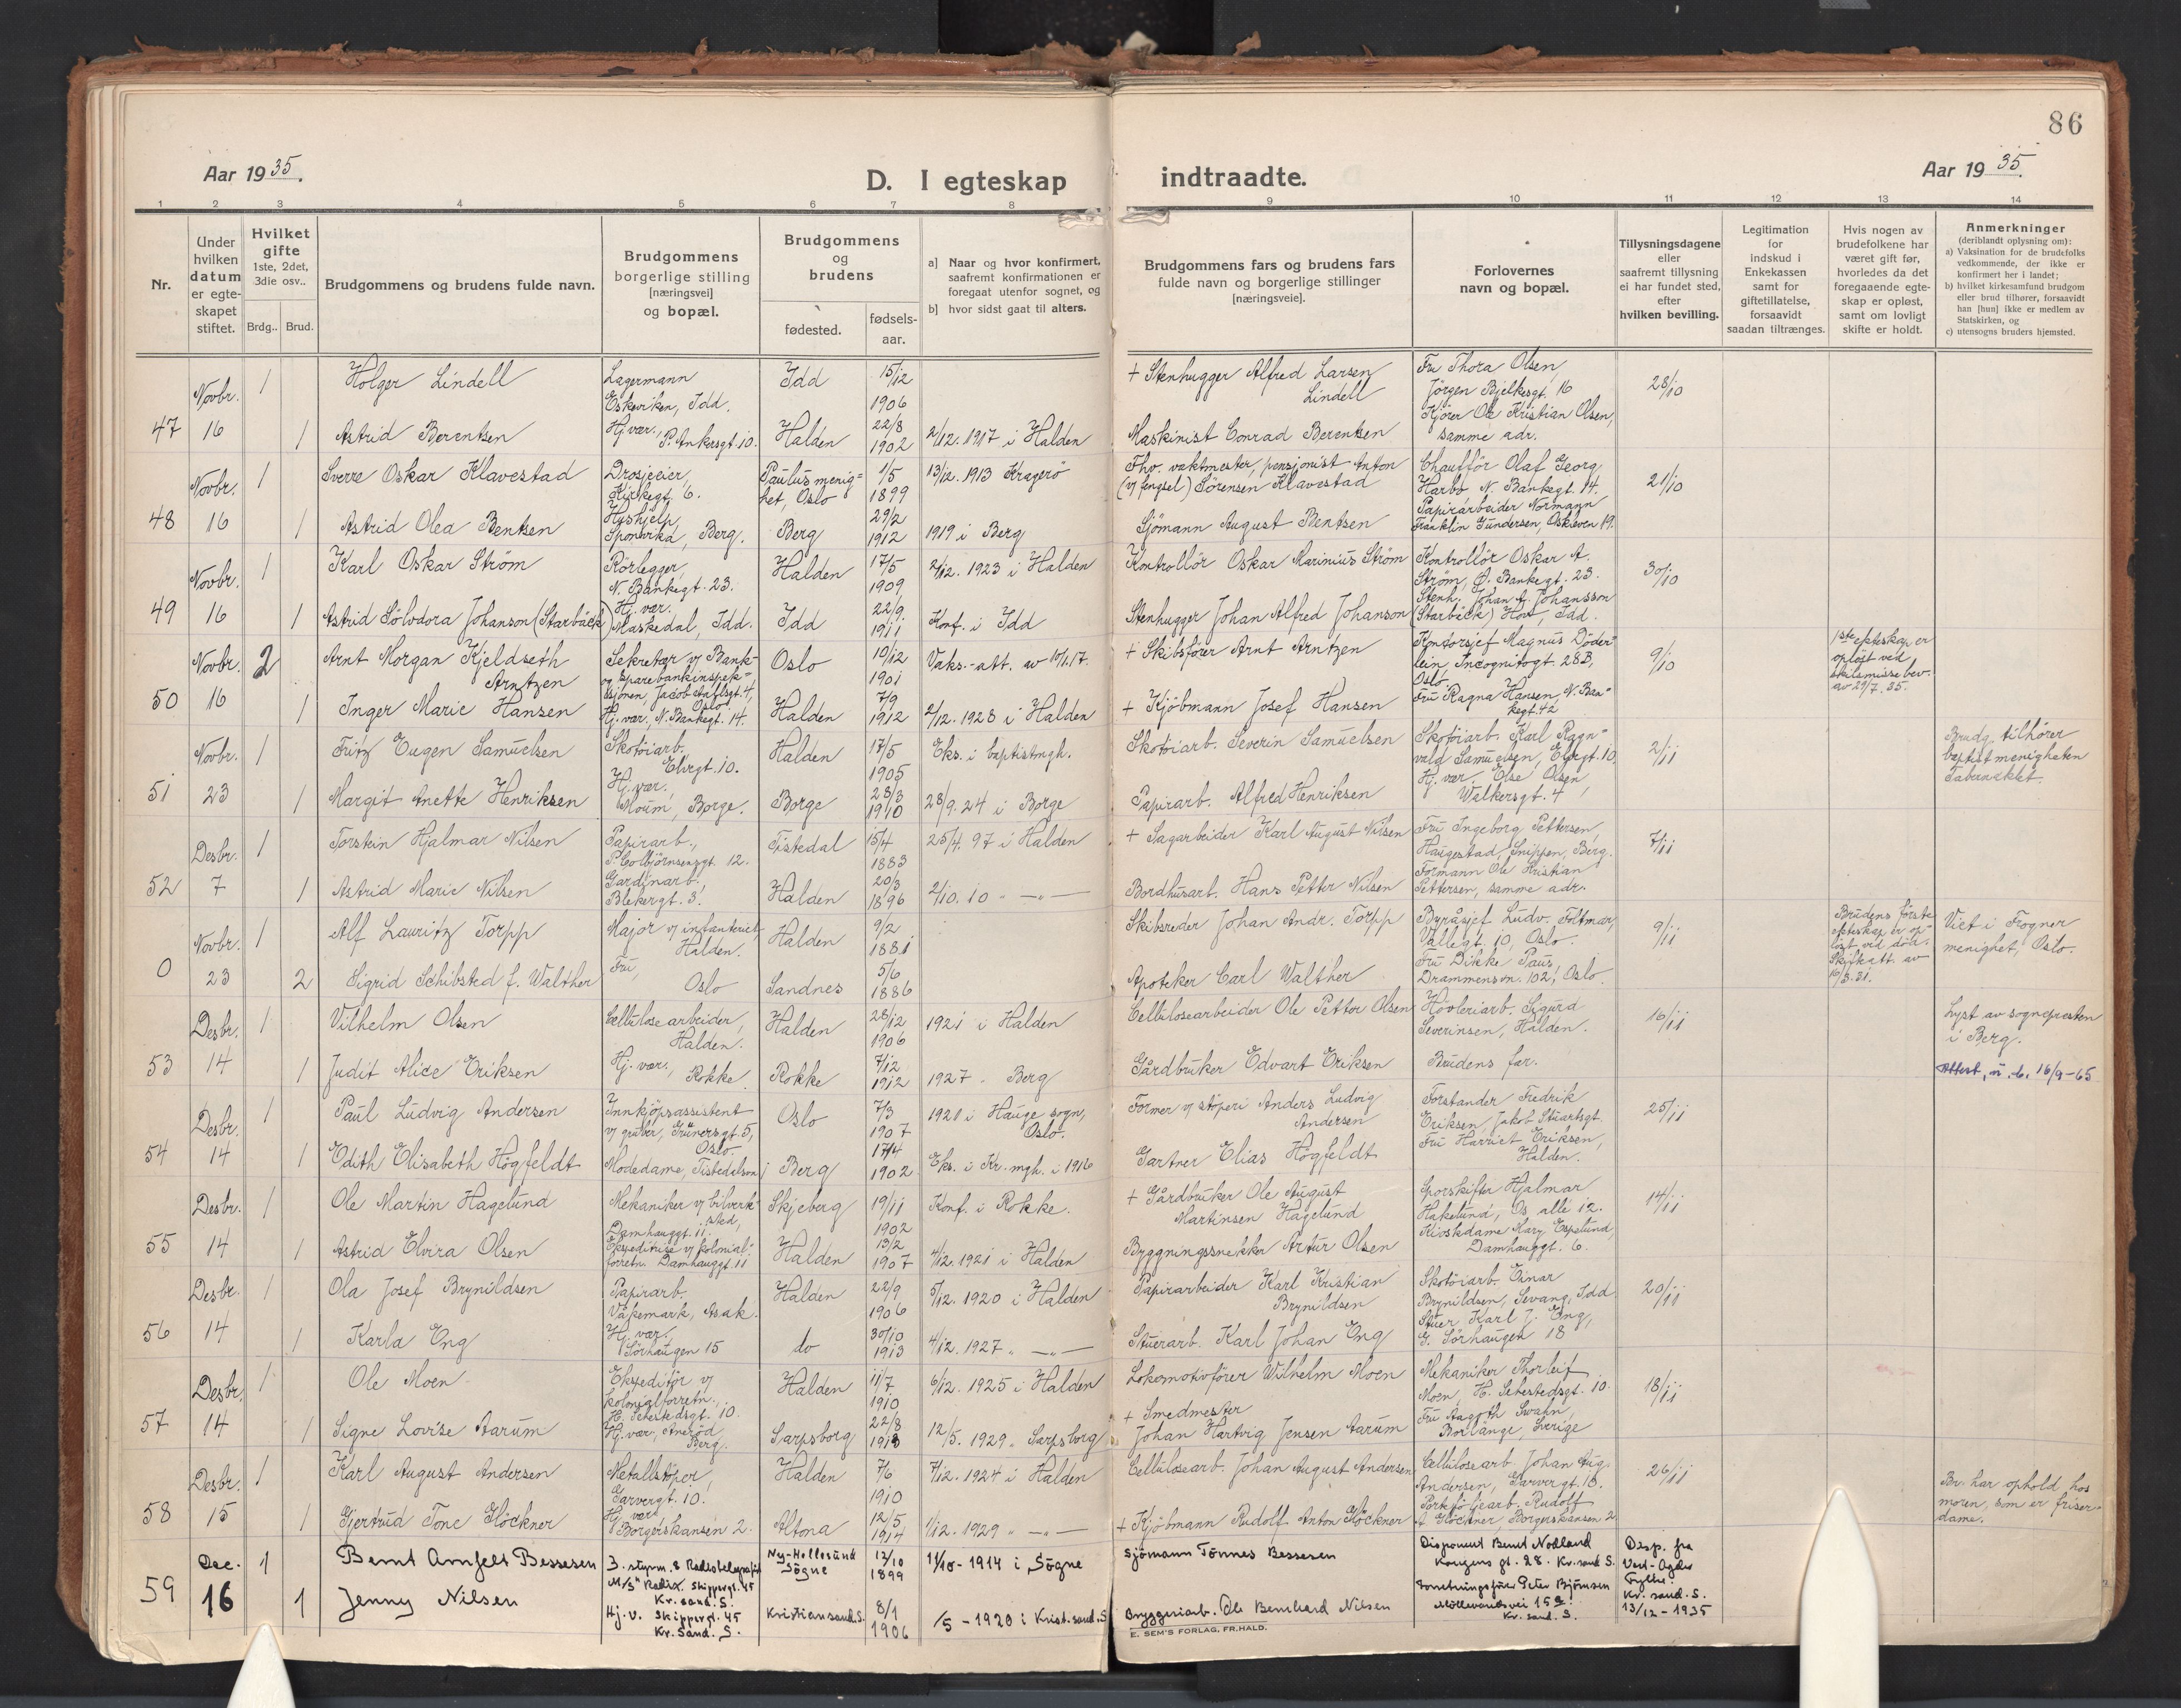 86
Aar 1935.
D. I egteskap indtraadte.
Aar 1935.
1 2 3 4 5 6 7 8 9 10 11 12 13 14
Nr.
Under hvilken datum er egte-skapet stiftet.
Hvilket gifte 1ste, 2det, 3die osv..
Brdg.. Brud.
Brudgommens og brudens fulde navn.
Brudgommens borgerlige stilling [næringsvei] og bopæl.
Brudgommens og brudens
fødested.
fødsels-aar.
a] Naar og hvor konfirmert, saafremt konfirmationen er foregaat utenfor sognet, og
b] hvor sidst gaat til alters.
Brudgommens fars og brudens fars fulde navn og borgerlige stillinger [næringsveie].
Forlovernes navn og bopæl.
Tillysningsdagene eller saafremt tillysning ei har fundet sted, efter hvilken bevilling.
Legitimation for indskud i Enkekassen samt for giftetillatelse, forsaavidt saadan tiltrænges.
Hvis nogen av brudefolkene har været gift før, hvorledes da det foregaaende egte-skap er opløst, samt om lovligt skifte er holdt.
Anmerkninger (deriblandt oplysning om):
a) Vaksination for de brudefolks vedkommende, der ikke er konfirmert her i landet;
b) hvilket kirkesamfund brudgom eller brud tilhører, forsaavidt han [hun] ikke er medlem av Statskirken, og
c) utensogns bruders hjemsted.
47 Novbr. 16
1 Holger Lindell Lagermann Eskeviken, Idd. Idd 15/12 1906 + Stenhugger Alfred Larsen Lindell Fru Thora Olsen, Jörgen Bjelkesgt. 16 28/10
1 Astrid Berentsen Hj. vær., P. Ankersgt. 10. Halden 22/8 1902 2/12. 1917 i Halden Maskinist Conrad Berentsen Kjörer Ole Kristian Olsen, samme adr.
48 Novbr. 16
1 Sverre Oskar Klavestad Drosjeeier, Kirkegt. 6. Paulus menig=het, Oslo 1/5 1899 13/12. 1913 Kragerö Fhv. vaktmester, pensjonist Anton (v/ fengsel) Sörensen Klavestad Chaufför Olaf Georg Harbo, N. Bankegt. 14. 21/10
1 Astrid Olea Bentsen Hushjelp Sponvika, Berg. Berg 29/2 1912 1919 i Berg Sjömann August Bentsen Papirarbeider Normann Franklin Gundersen, Oskleven 19.
49 Novbr. 16
1 Karl Oskar Ström Rörlegger, N. Bankegt. 23. Halden 17/5 1909 2/12. 1923 i Halden Kontrollör Oskar Marinius Ström Kontrollör Oskar A. Ström, Ö. Bankegt. 23. 30/10
1 Astrid Sölvdora Johanson (Starbäck) Hj. vær. Maskedal, Idd. Idd 22/9 1911 Konf. i Idd Stenhugger Johan Alfred Johanson (Starbäck) Stenh. Johan A. Johansson Hov, Idd.
50 Novbr. 16
2 Arnt Morgan Kjeldseth Arntzen Sekretær v/ Bank- og Sparebankinspek=sjonen, Jacob Aallsgt. 4, Oslo. Oslo 10/12 1901 Vaks.-att. av 10/1.17. + Skibsförer Arnt Arntzen Kontorsjef Magnus Döder=lein, Incognitogt. 28B, Oslo. 9/10 1ste ekteskap er oplöst ved skilsmisse bev. av 29/7. 35.
1 Inger Marie Hansen Hj. vær., N. Bankegt. 14. Halden 7/9 1912 2/12. 1928 i Halden + Kjöbmann Josef Hansen Fru Ragna Hansen, N. Ban=kegt. 42
51 Novbr. 23
1 Fritz Eugen Samuelsen Skotöiarb. Elvegt. 10. Halden 17/5 1905 Eks. i baptistmgh. Skotöiarb. Severin Samuelsen Skotöiarb. Karl Ragn=vald Samuelsen, Elvegt. 10. 2/11 Brudg. tilhörer baptistmenigheten Tabernaklet.
1 Margit Anette Henriksen Hj. vær. Moum, Borge. Borge 28/3 1910 28/9. 24 i Borge Papirarb. Alfred Henriksen Hj. vær. Else Olsen, Walkersgt. 4
52 Desbr. 7
1 Torstein Hjalmar Nilsen Papirarb., P. Colbjörnsensgt. 12. Tistedal 15/4 1883 25/4. 97 i Halden + Sagarbeider Karl August Nilsen Fru Ingeborg Pettersen, Haugestad, Snippen, Berg. 7/11
1 Astrid Marie Nilsen Gardinarb. Blekergt. 3. Halden 20/3 1896 2/10. 10 —"— Bordhusarb. Hans Petter Nilsen Formann Ole Kristian Pettersen, samme adr.
0 Novbr. 23
1 Alf Lauritz Torpp Major v/ infanteriet, Halden. Halden 9/2 1881 Skibsreder Johan Andr. Torpp Byråsjef Ludv. Foltmar, Vallegt. 10, Oslo. 9/11 Brudens förste ekteskap er op=löst ved död. Skifteatt. av 16/3. 31. Viet i Frogner menighet, Oslo.
2 Sigrid Schibsted f. Walther Fru, Oslo Sandnes 5/6 1886 Apoteker Carl Walther Fru Dikke Paus, Drammensvn. 102, Oslo.
53 Desbr. 14
1 Vilhelm Olsen Cellulosearbeider, Halden. Halden 28/12 1906 1921 i Halden Cellulosearbeider Ole Petter Olsen Hövleriarb. Sigurd Severinsen, Halden. 16/11 Lyst av sognepresten i Berg.
1 Judit Alice Eriksen Hj. vær., Rokke Rokke 7/12 1912 1927 " Berg Gårdbruker Edvart Eriksen Brudens far. Attest, u. b. 16/9-65
54 Desbr. 14
1 Paul Ludvig Andersen Innkjöpsassistent v/ gruber, Grünersgt. 5, Oslo. Oslo 7/3 1907 1921 i Hauge sogn, Oslo. Former v/ stöperi Anders Ludvig Andersen Forstander Fredrik Eriksen, Jakob Stuartsgt. 25/11
1 Edith Elisabeth Högfeldt Modedame, Tistedalen Berg 17/4 1902 Eks. i Kr. mgh. i 1916 Gartner Elias Högfeldt Fru Harriet Eriksen, Halden.
55 Desbr. 14
1 Ole Martin Hagelund Mekaniker v/ bilverk=sted, Damhauggt. 11. Skjeberg 19/11 1902 Konf. i Rokke. + Gårdbruker Ole August Martinsen Hagelund Sporskifter Hjalmar Hakelund, Os alle 12. 14/11
1 Astrid Elvira Olsen Ekspeditrise v/ kolonial=forretn. Damhauggt. 11 Halden 13/2 1907 4/12. 1921 i Halden Byggningssnekker Artur Olsen Kioskdame Mary Espelund, Damhauggt. 6.
56 Desbr. 14
1 Ola Josef Brynildsen Papirarb. Våkemark, Asak. Halden 22/9 1906 5/12. 1920 i Halden Papirarbeider Karl Kristian Brynildsen Skotöiarb. Einar Brynildsen, Levang, Idd 20/11
1 Karla Eng Hj. vær. Sörhaugen 15 do 30/10 1913 4/12. 1927 " —"— Stuerarb. Karl Johan Eng Stuer Karl J. Eng, G. Sörhaugen 18
57 Desbr. 14
1 Ole Moen Ekspeditör v/ kolonialforretn., H. Sehestedsgt. 10. Halden 11/7 1910 6/12. 1925 i Halden Lokomotivförer Wilhelm Moen Mekaniker Thorleif Moen, H. Sehestedsgt. 10. 18/11
1 Signe Lovise Aarum Hj. vær., Berg. Sarpsborg 22/8 1913 12/5. 1929 " Sarpsborg + Smedmester Johan Hartvig Jensen Aarum Fru Aagoth Swahn, Borlänge, Sverige
58 Desbr. 15
1 Karl August Andersen Metallstöper, Garvergt. 10. Halden 7/6 1910 7/12. 1924 i Halden Cellulosearb. Johan August Andersen Cellulosearb. Johan Aug. Andersen, Garvergt. 10. 26/11
1 Gjertrud Tone Glöckner Hj. vær Borgerskansen 2. Altona 12/5 1914 1/12. 1929 " —"— + Kjöbmann Rudolf Anton Glöckner Porteföljearb. Rudolf A Glöckner, Borgerskansen 2 Br. har ophold hos moren, som er friser=dame.
59 Dec. 16
1 Bernt Arnfelt Bessesen 3. styrm. & Radiotelegrafist M/S "Radix. Skippergt. 45 Kr. sand. S. Ny-Hellesund Søgne 12/10 1899 11/10-1914 i Søgne Sjömann Tønnes Bessesen Disponent Bernt Nodland Kongens gt. 28. Kr. sand S. Disp. fra Vest-Agder Fylke. Kr. sand. S. 13/12-1935
1 Jenny Nilsen Hj. v. Skippergt. 45 Kr. Sand. S. Kristiansand. S. 8/1 1906 /5-1920 i Krist.sand. S Bryggeriarb. Ole Bernhard Nilsen Forretningsfører Peter Bjørnsen Møllevandsvei 15 Kr. sand. S.
E. SEM'S FORLAG, FR.HALD.